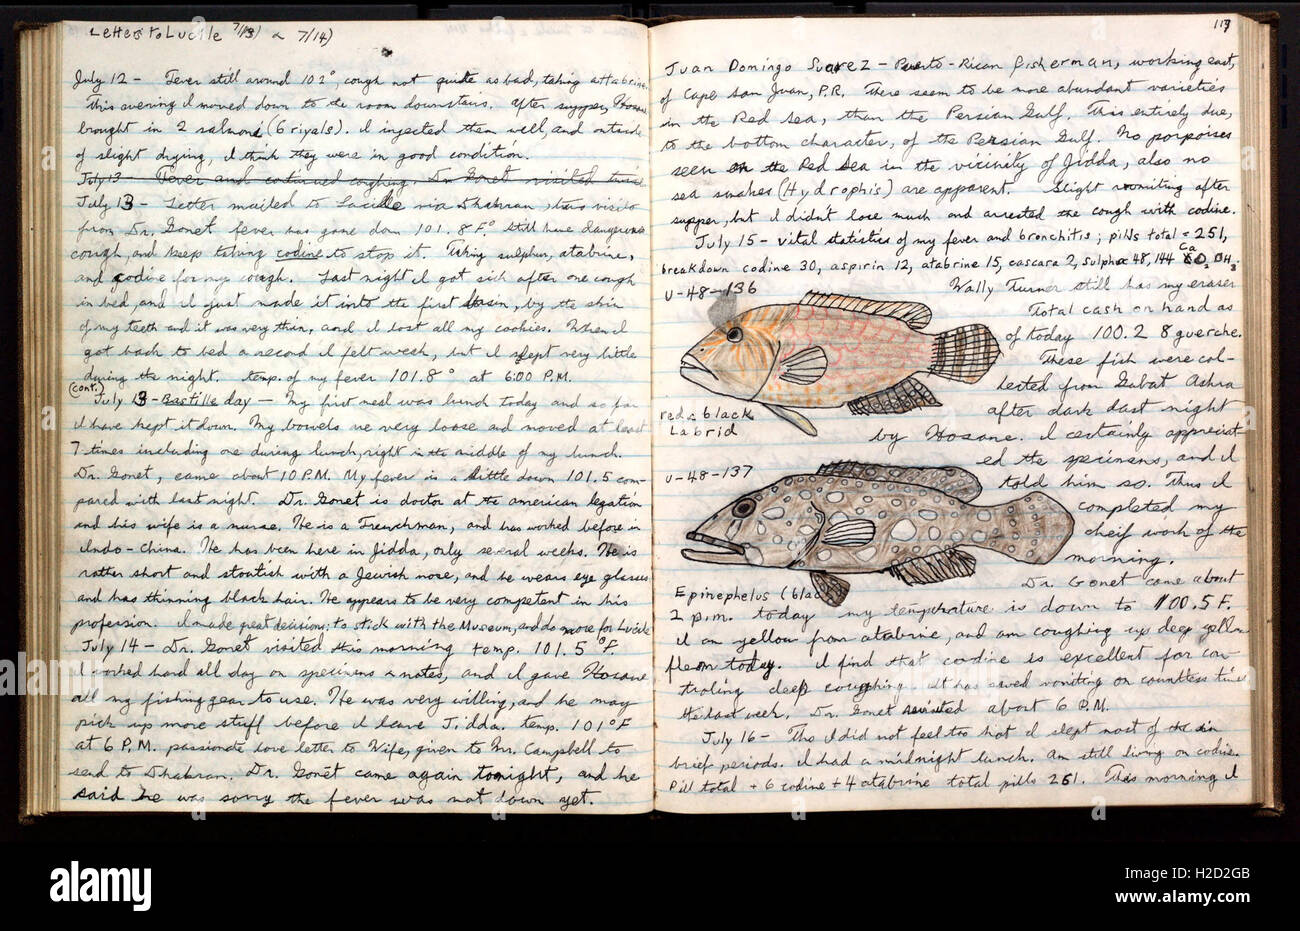 Letters to Lucile 7/13) & 7/14)
July 12 - Fever still around 102°, cough not quite as bad, taking attabrine.
This evening I moved down to the room downstairs. After supper, Hosane
brought in 2 salmons (6 riyals). I injected them well, and outside
of slight drying, I think they were in good condition.
July 13 - Fever and continued coughing. Dr. Gonet visited twice
July 13 - Letter mailed to Lucille via Dhahran, two visits
from Dr. Gonet fever has gone down 101.8 F° still have dangerous
cough, and keep taking codine to stop it. Taking sulpher, atabrine,
and codine for my cough. Last night I got sick after one cough
in bed, and I just made it into the first basin, by the skin
of my teeth and it was very thin, and I lost all my cookies. When I
got back to bed a second I felt weak, but I slept very little
during the night. temp. of my fever 101.8° at 6:00 P.M.
(cont.)
July 13 - Bastille day - My first meal was lunch today and so far
I have kept it down. My bowels are very loose and moved at least
7 times including one during lunch, right in the middle of my lunch.
Dr. Gonet, came about 10 P.M. My fever is a little down 101.5 com-
pared with last night. Dr. Gonet is doctor at the american legation
and his wife is a nurse. He is a Frenchman, and has worked before in
Indo-china. He has been here in Jidda, only several weeks. He is
rather short and stoutish with a Jewish nose, and he wears eye glasses
and has thinning black hair. He appears to be very competent in his
profession. I made great decisions; to stick with the Museum, and do more for Lucile
July 14 - Dr. Gonet visited this morning temp. 101.5 °F.
I worked hard all day on specimens & notes, and I gave Hosane
all my fishing gear to use. He was very willing, and he may
pick up more stuff before I leave Jidda. temp. 101°F
at 6 P.M. passionate love letter to Wife, given to Mr. Campbell to
send to Dhahran. Dr. Gonet came again tonight, and he
said he was sorry the fever was not down yet.
119
Juan Domingo Suarez - Puerto-Rican fisherman, working east,
of Cape San Juan, P.R. There seem to be more abundant varieties
in the Red Sea, than the Persian Gulf. This entirely due,
to the bottom character, of the Persian Gulf. No porpoises
seen on the Red Sea in the vicinity of Jidda, also no
sea snakes (Hydrophis) are apparent. Slight vomiting after
supper, but I didn't lose much and arrested the cough with codine.
July 15 - vital statistics of my fever and bronchitis; pills total = 251,
breakdown codine 30, aspirin 12, atabrine 15, cascara 2, sulpha 48, 144
U-48-136
Wally Turner still has my eraser
Total cash on hand as
of today 100.2 8 guerche.
These fish were col-
lected from Gabat Ashra
after dark last night
red & black
Labrid
by Hosane. I certainly appreciat-
ed the specimens, and I
U-48-137
told him so. Thus I
completed my
cheif work of the
morning.
Dr. Gonet came about
Epinephelus (black)
2 p.m. today my temperature is down to 100.5 F.
I am yellow from atabrine, and am coughing up deep yellow
flem today. I find that codine is excellent for con-
troling deep coughing. It has saved vomiting on countless times
the last week. Dr. Gonet revisited about 6 P.M.
July 16 - Tho I did not feel too hot I slept most of the in
brief periods. I had a midnight lunch. am still living on codine.
Pill total + 6 codine + 4 atabrine total pills 261. This morning I
a alamy stock photo
alamy
Image ID: H2D2GB
www.alamy.com